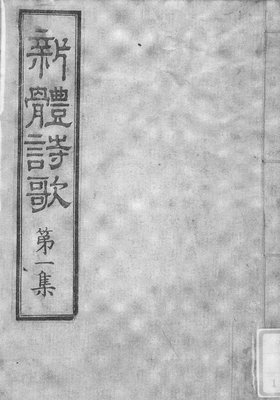 新體詩歌
第一集